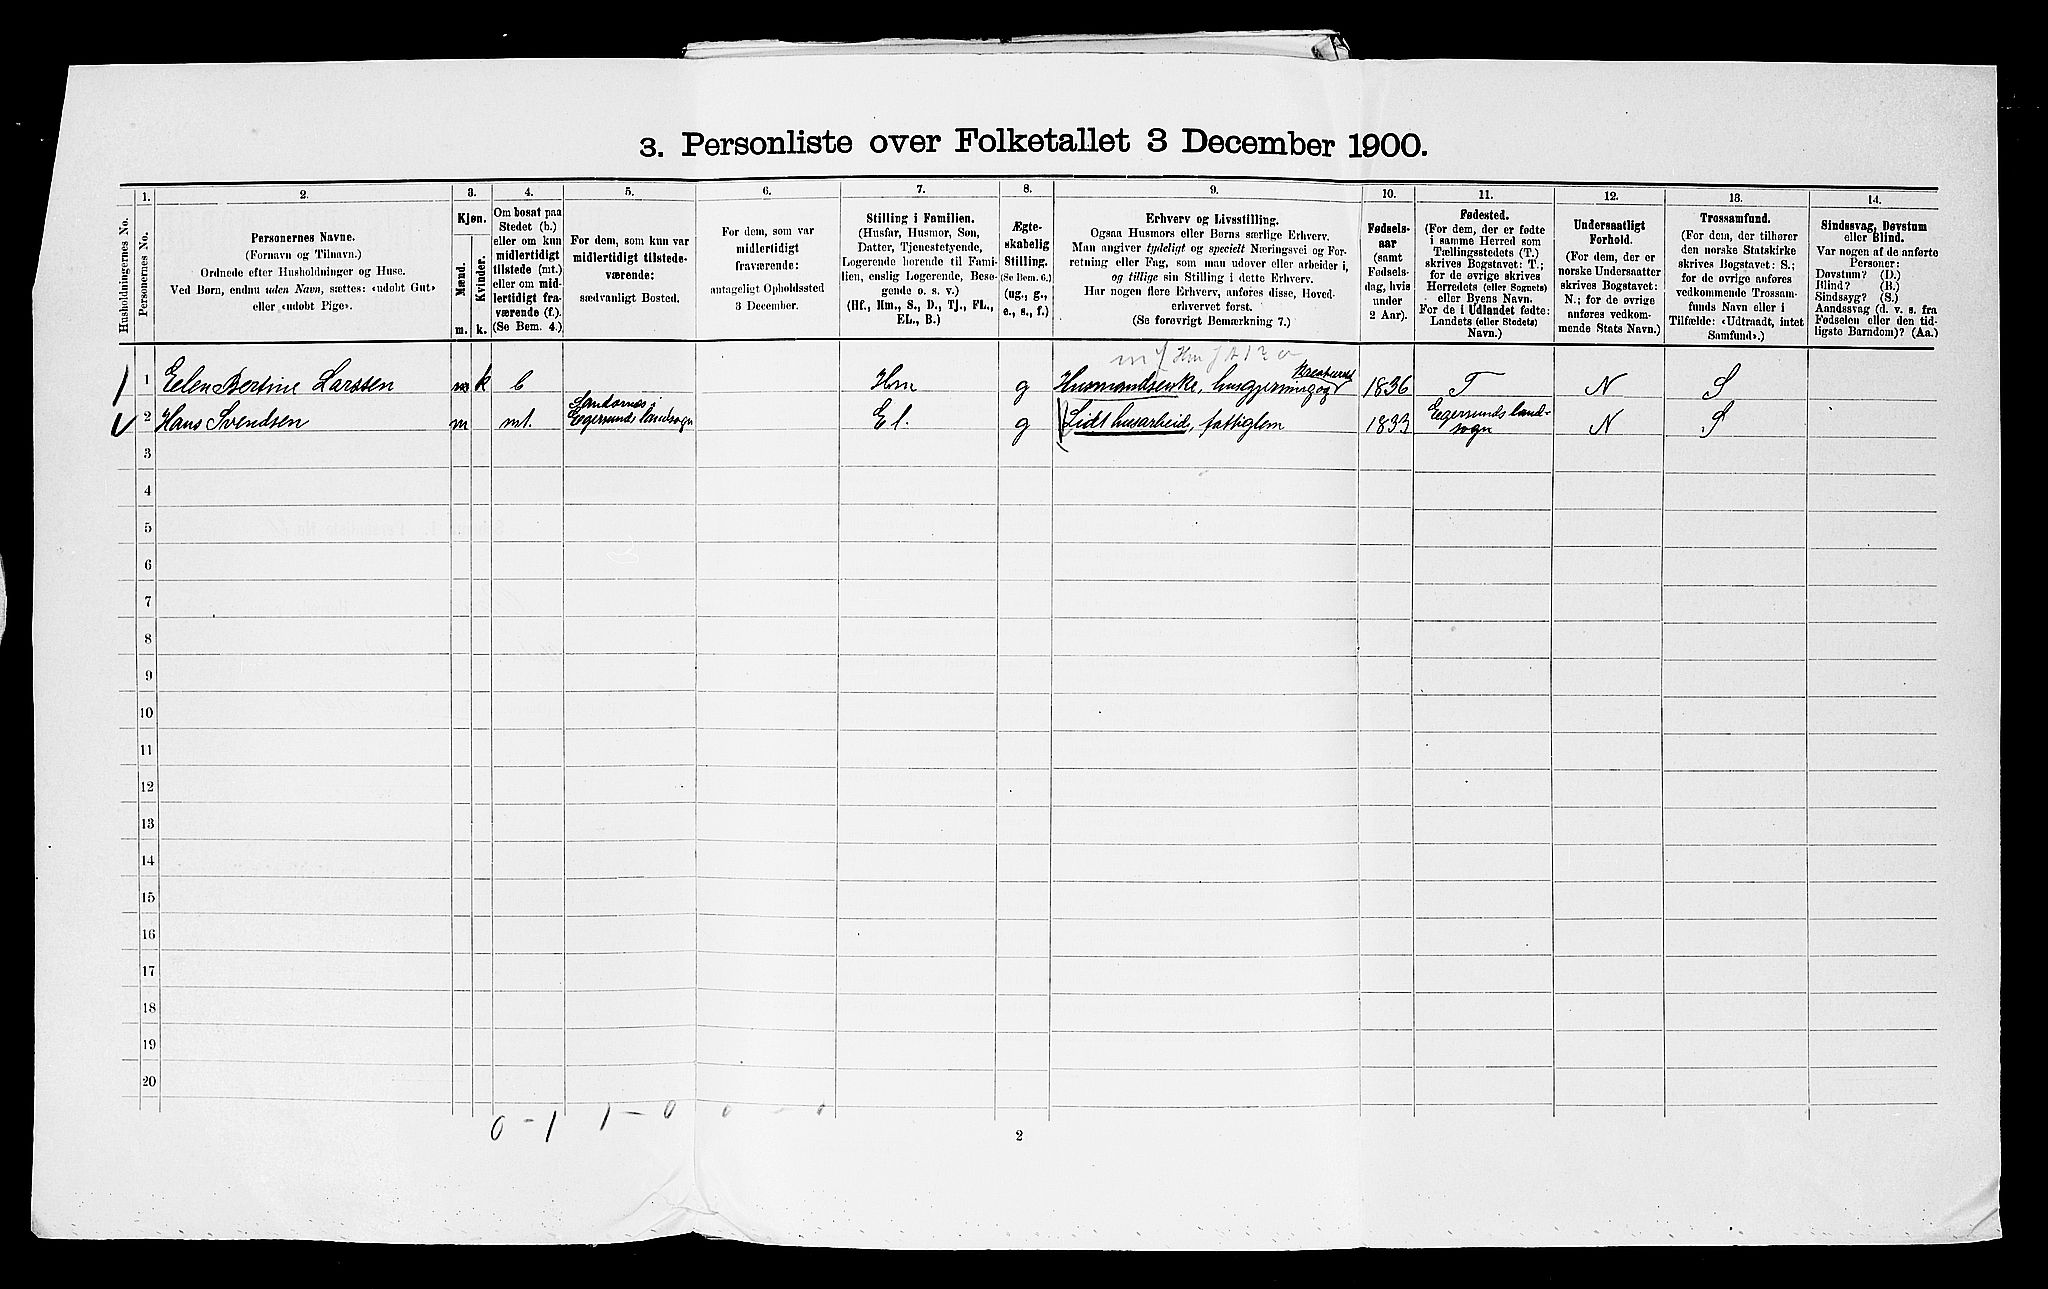 3. Personliste over Folketallet 3 December 1900.
1. 2. 3. 4. 5. 6. 7. 8. 9. 10. 11. 12. 13. 14.
Husholdningernes No.
Personernes No.
Personernes Navne.
(Fornavn og Tilnavn.)
Ordnede efter Husholdninger og Huse.
Ved Børn, endnu uden Navn, sættes: «udøbt Gut»
eller «udøbt Pige».
Kjøn.
Mænd.
Kvinder.
m. k.
Om bosat paa
Stedet (b.)
eller om kun
midlertidigt
tilstede (mt.)
eller om mid-
lertidigt fra-
værende (f.).
(Se Bem. 4.)
For dem, som kun var
midlertidigt tilstede-
værende:
sædvanligt Bosted.
For dem, som var
midlertidigt
fraværende:
antageligt Opholdssted
3 December.
Stilling i Familien.
(Husfar, Husmor, Søn,
Datter, Tjenestetyende,
Logerende hørende til Fami-
lien, enslig Logerende, Besø-
gende o. s. v.)
(Hf., Hm., S., D., Tj., FL.,
EL., B.)
Ægte-
skabelig
Stilling.
(Se Bem. 6.)
(ug., g.,
e., s., f.)
Erhverv og Livsstilling.
Ogsaa Husmors eller Børns særlige Erhverv.
Man angiver tydeligt og specielt Næringsvei og For-
retning eller Fag, som man udøver eller arbeider i,
og tillige sin Stilling i dette Erhverv.
Har nogen flere Erhverv, anføres disse, Hoved-
erhvervet først.
(Se forøvrigt Bemærkning 7.)
Fødsels-
aar
(samt
Fødsels-
dag, hvis
under
2 Aar).
Fødested.
(For dem, der er fødte
i samme Herred som
Tællingsstedets (T.)
skrives Bogstavet: T.;
for de øvrige skrives
Herredets (eller Sognets)
eller Byens Navn.
For de i Udlandet fødte:
Landets (eller Stedets)
Navn.)
Undersaatligt
Forhold.
(For dem, der er
norske Undersaatter
skrives Bogstavet:
N.; for de øvrige
anføres vedkom-
mende Stats Navn.)
Trossamfund.
(For dem, der tilhører
den norske Statskirke
skrives Bogstavet: S.;
for de øvrige anføres
vedkommende Trossam-
funds Navn eller i
Tilfælde: «Udtraadt, intet
Samfund».)
Sindssvag, Døvstum
eller Blind.
Var nogen af de anførte
Personer:
Døvstum? (D.)
Blind? (B.)
Sindssyg? (S.)
Aandssvag (d. v. s. fra
Fødselen eller den tid-
ligste Barndom)? (Aa.)
1 Eelen Bertine Larssen m k b Hm g Husmandsenke, husgjerning og Kreaturst 1836 T N S
2 Hans Svendsen m mt. Egersunds landsogn El. g Lidt husarbeid, fattiglem 1833 Egersunds land-
sogn N S
3
4
5
6
7
8
9
10
11
12
13
14
15
16
17
18
19
20
0 - 1 1 - 0 0 - 0
2